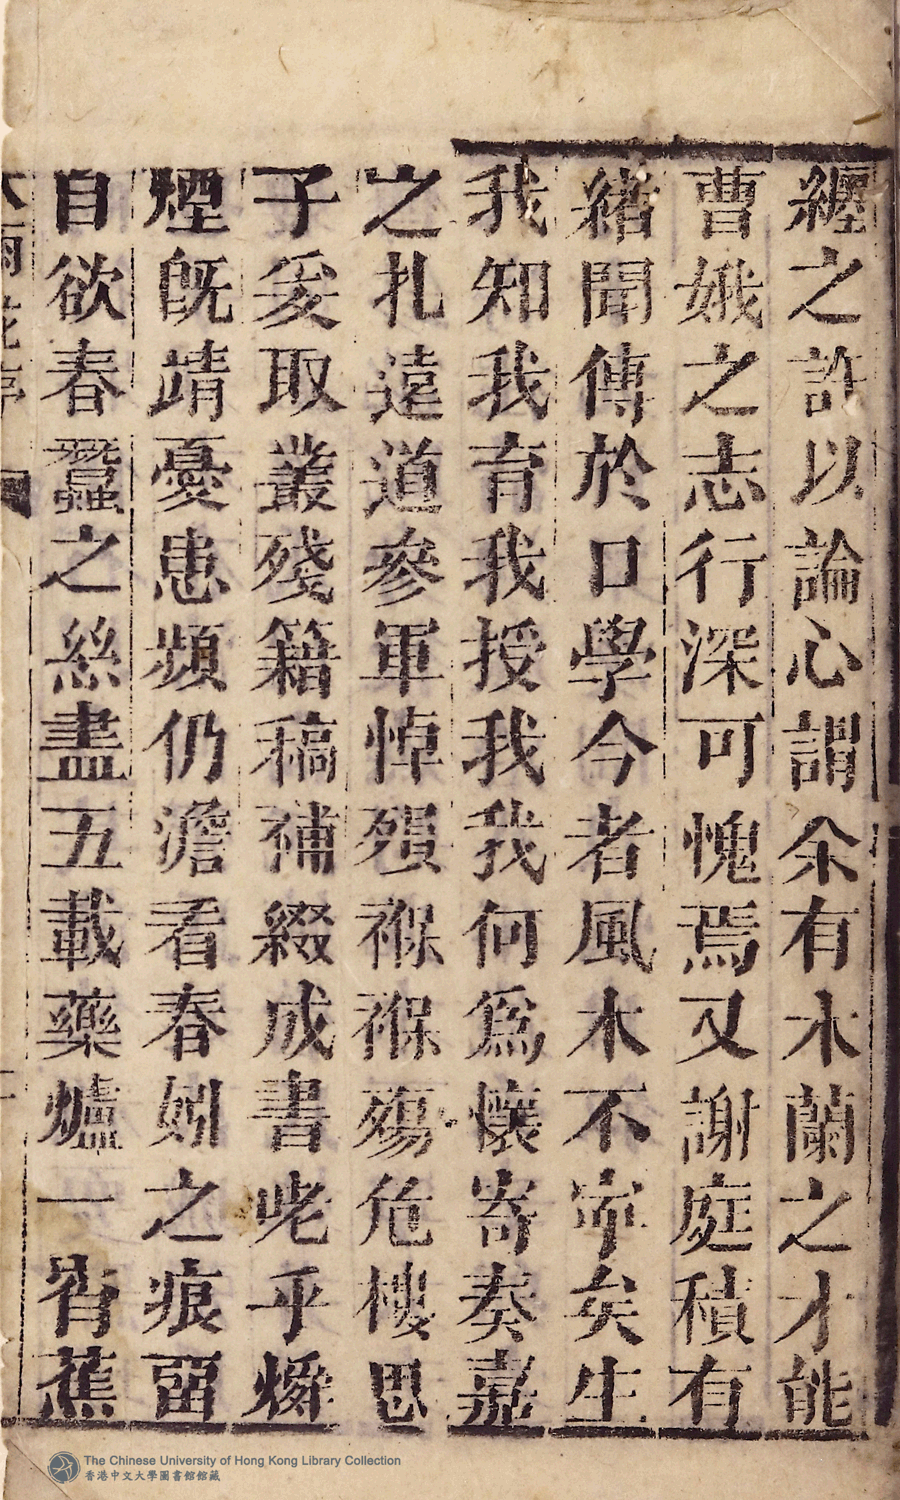 纒之許以論心謂余有木蘭之才能
曹娥之志行深可愧焉又謝庭積有
緒聞傳於口學今者風木不寧矣生
我知我育我授我我何爲懷寄奏嘉
之扎遠道參軍悼殞褓褓殤危樓思
子爰取叢殘籍稿補綴成書咾乎
煙旣靖憂患頻仍澹看春蚓之痕留
自欲春蠶之絲盡五載藥爐一宵蕉
The Chinese University of Hong Kong Library Collection
香港中文大學圖書館館藏